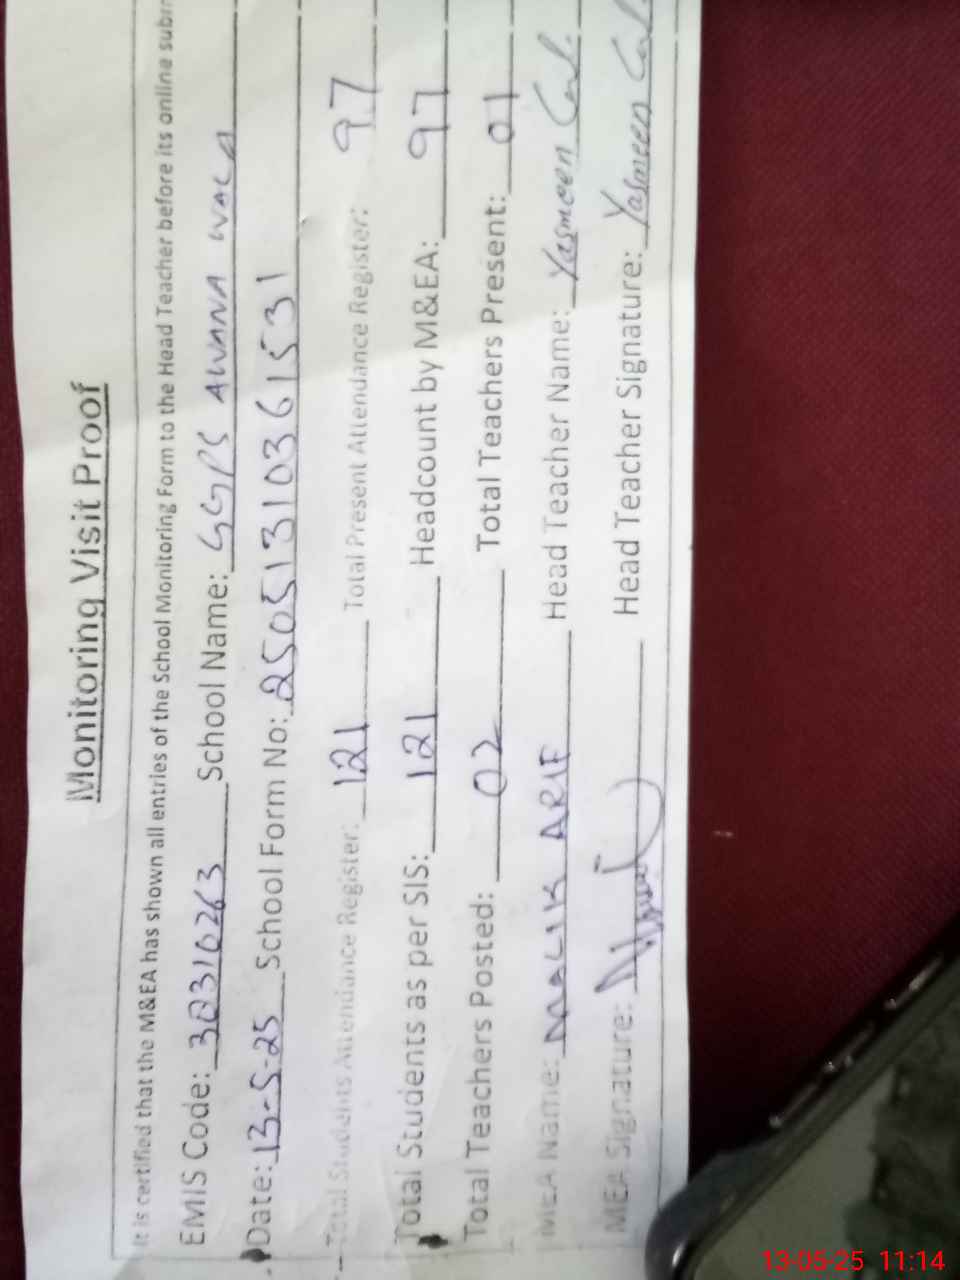 Monitoring Visit Proof
It is certified that the M&EA has shown all entries of the School Monitoring Form to the Head Teacher before its online
EMIS Code: 38310263 School Name: GGPS AWANA WALA
Date: 13-5-25 School Form No: 25051310361531
Total Students Attendance Register: 121 Total Present Attendance Register: 97
Total Students as per SIS: 121 Headcount by M&EA: 97
Total Teachers Posted: 02 Total Teachers Present: 01
MEA Name: MALIK ARIF Head Teacher Name: Yasmeen
MEA Signature: Head Teacher Signature: Yasmeen
13-05-25 11:14